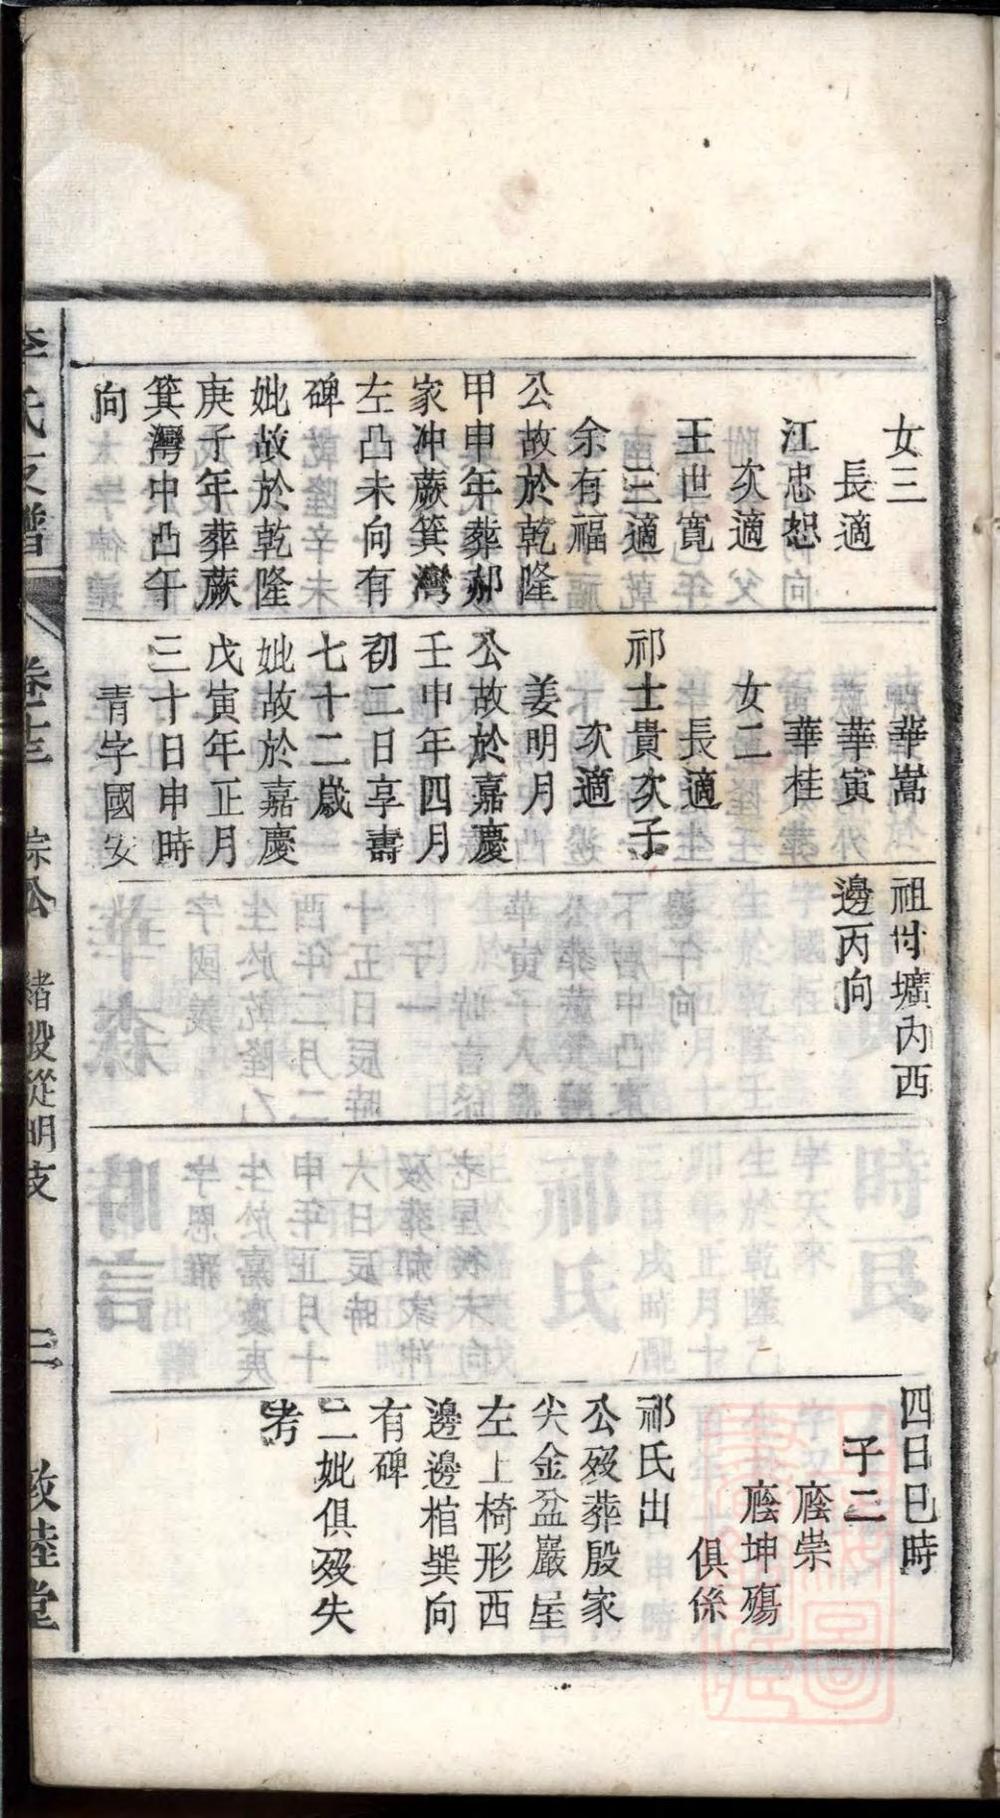 女三
長適
江忠恕
次適
王世寬
三適
余有福
公故於乾隆
甲申年葬郝
家冲蕨箕灣
左凸未向有
碑
妣故於乾隆
庚子年葬蕨
箕灣中凸午
向
華嵩
華寅
華桂
女二
長適
祁士貴次子
次適
姜明月
公故於嘉慶
壬申年四月
初二日享壽
七十二歲
妣故於嘉慶
戊寅年正月
三十日申時
青字國安
祖付壙內西
邊丙向
四日巳時
子二
廕崇
廕坤殤
俱係
祁氏出
公歿葬殷家
尖金盆巖屋
左上椅形西
邊邊棺巽向
有碑
二妣俱歿失
考
李氏支譜
卷十三
綜公
緒股從明支
三
敦睦堂